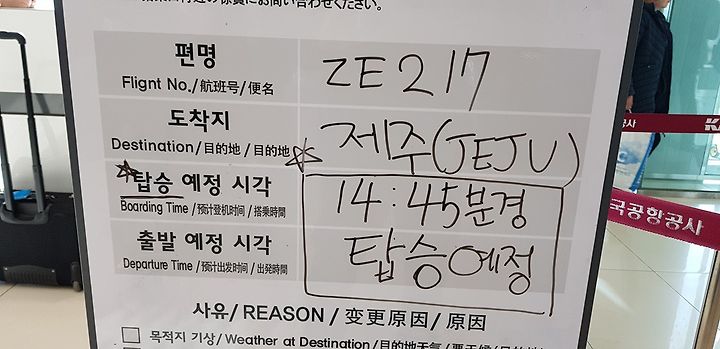 お問い合わせください。
편명
Flignt No./航班号/便名
ZE217
도착지
Destination/目的地/目的地
제주(JEJU)
☆탑승 예정 시각
Boarding Time/预计登机时间/搭乗時間
☆14:45분경
출발 예정 시각
Departure Time/预计出发时间/出発時間
탑승예정
사유/REASON/变更原因/原因
□ 목적지 기상/Weather at Destination/目的地天气/
공사
국공항공사